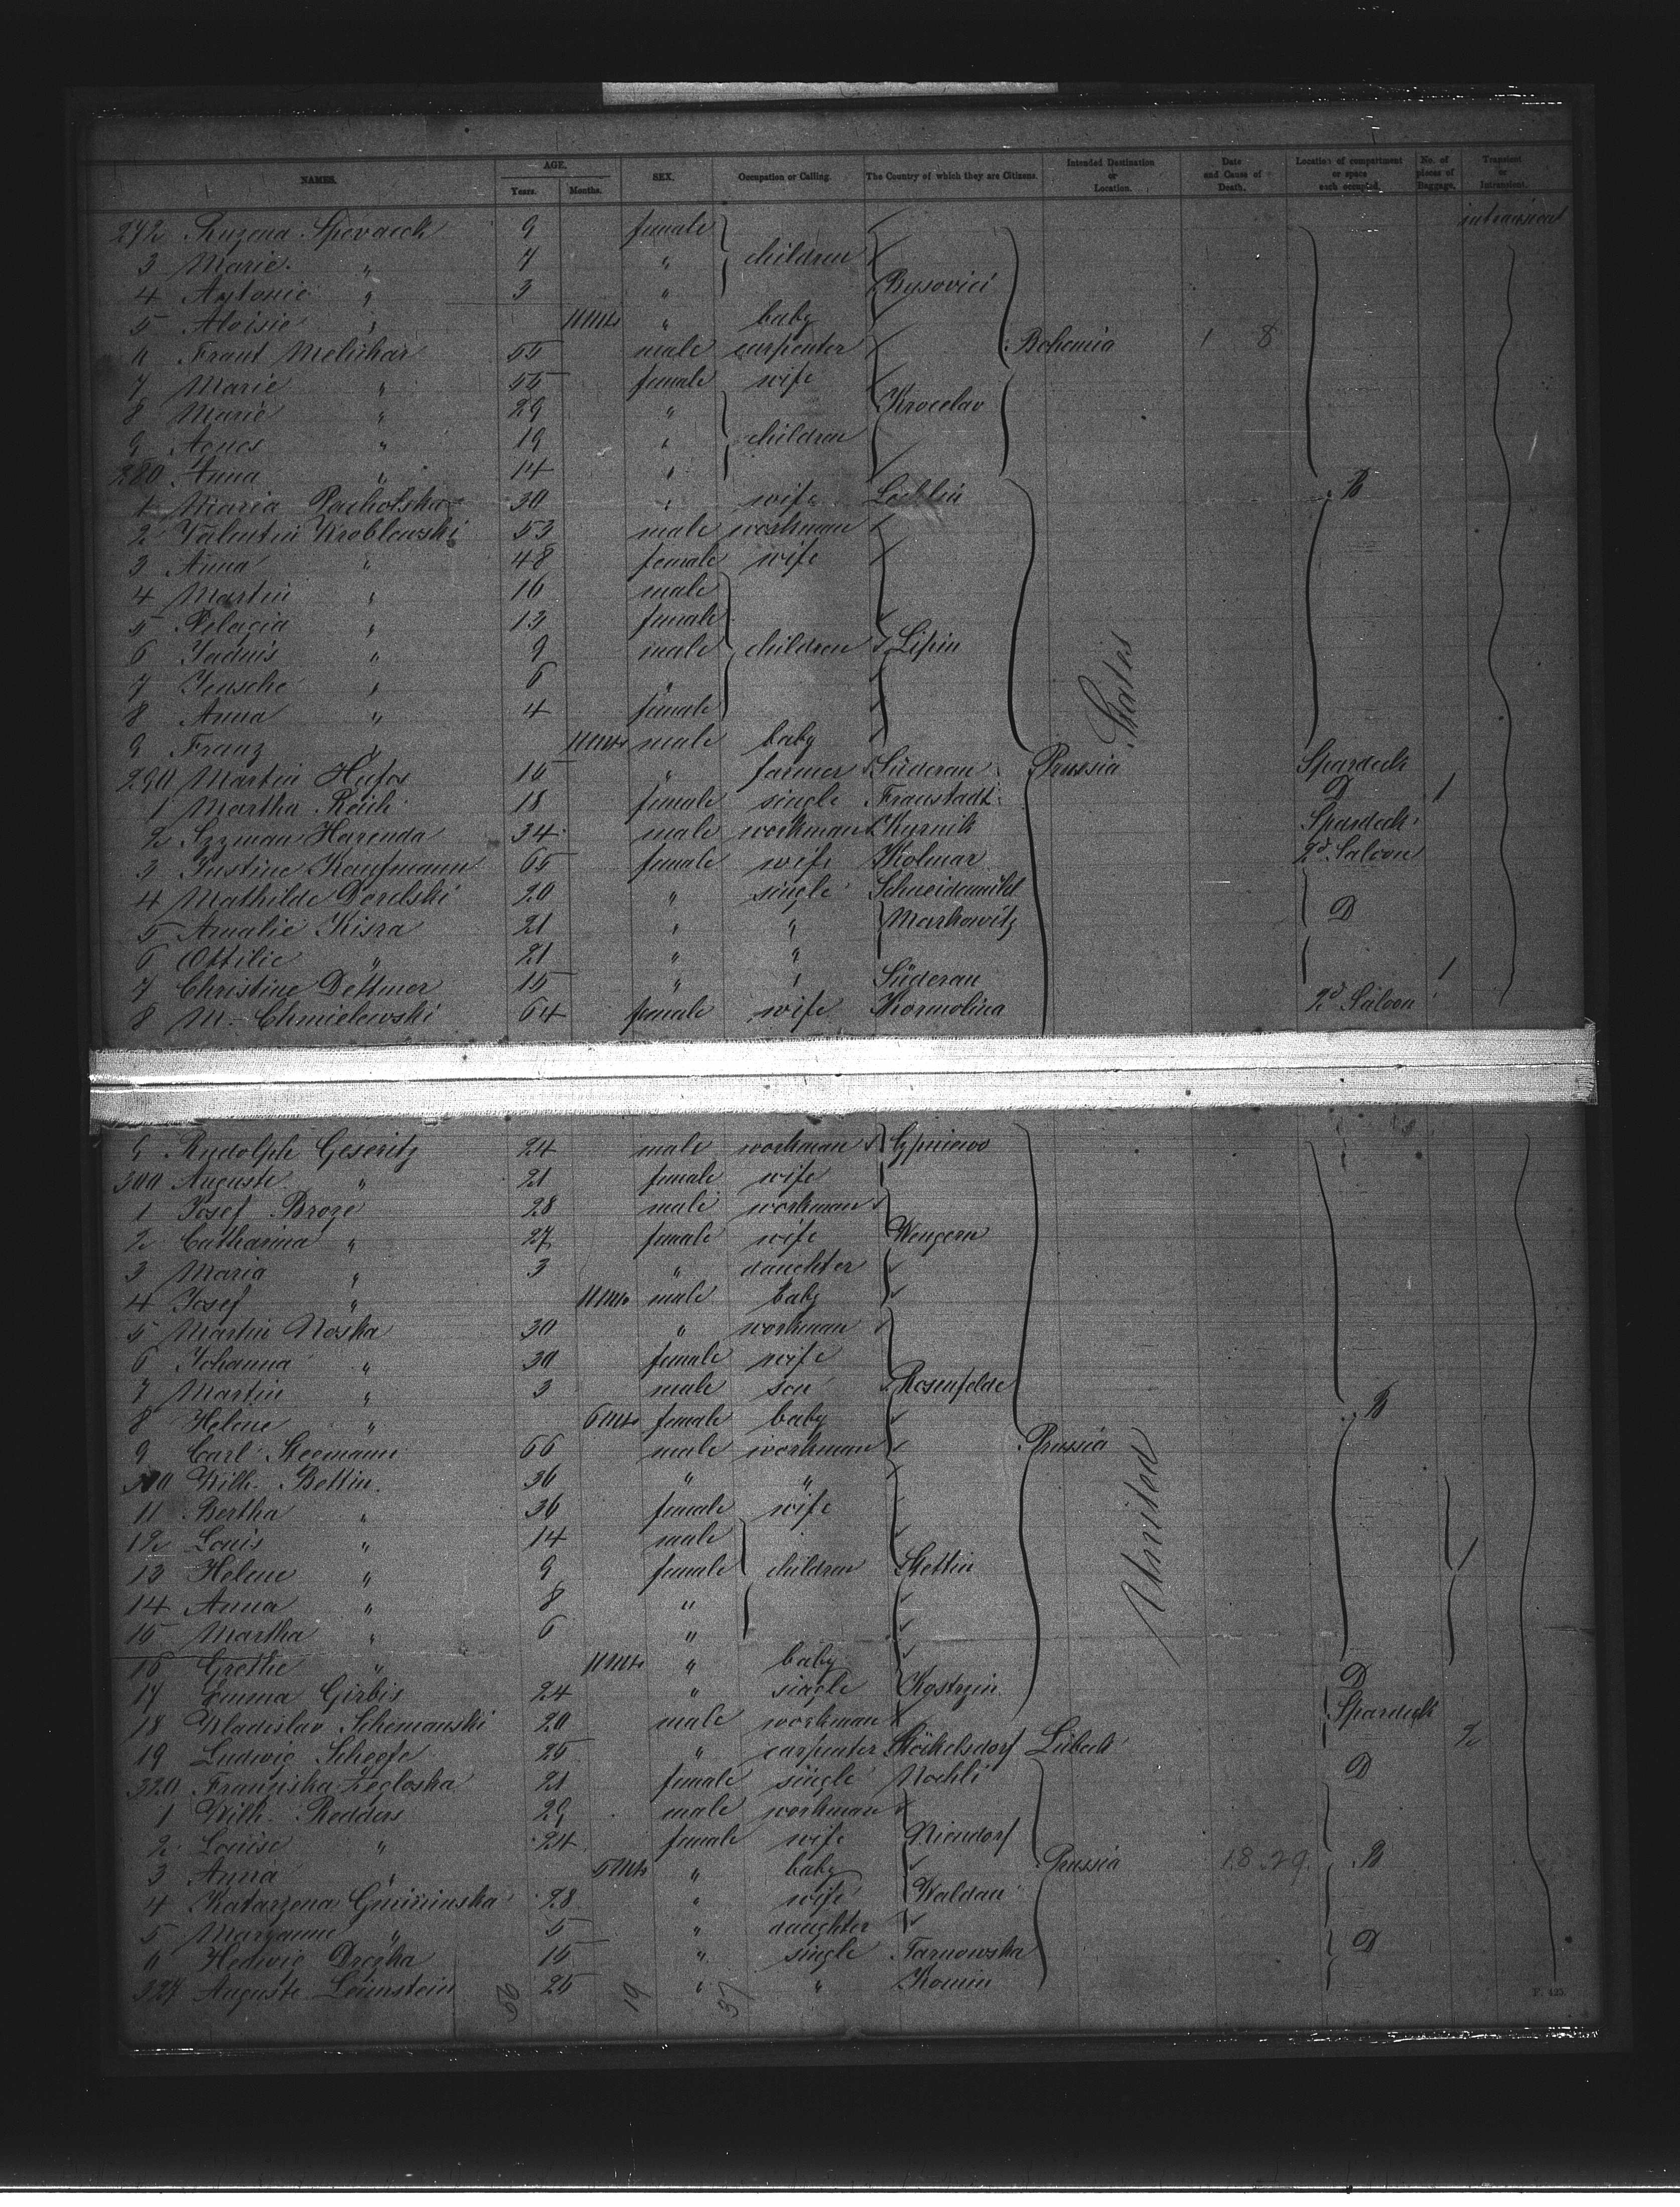 NAMES. AGE. Years. Months. SEX. Occupation or Calling. The Country of which they are Citizens. Intended Destination or Location. Date and Cause of Death. Location of compartment or space each occupied. No. of pieces of Baggage. Transient or Intransient.
272 Ruzena Spevacek 9 female intransient
3 Marie " 7 " children
4 Antonie " 3 " Bysovici
5 Aloisie " 11 Mts " baby
6 Frant Melichar 55 male carpenter Bohemia 1 8
7 Marie " 55 female wife
8 Marie " 29 " Krocelav
9 Agnes " 19 " children
280 Anna " 14 "
1 Maria Pachotska 30 " wife B
2 Valentin Wroblewski 53 male workman
3 Anna " 48 female wife
4 Martin " 16 male
5 Pelagia " 13 female
6 " 9 male children Lipin
7 " 6 "
8 Anna " 4 female States
9 Franz " 11 Mts male baby
290 Martin Hufos 15 " farmer Süderau Prussia Spardeck
1 Martha Reich 18 female single Fraustadt D 1
2 Szyman Harenda 34 male workman Kurnik Spardeck
3 Justine Kaufmann 65 female wife Kolmar 2d Saloon
4 Mathilde Dorelski 20 " single Schneidemühl D
5 Amalie Kisra 21 " " Markowitz
6 Ottilie " 21 " "
7 Christine Dettmer 15 " " Süderau 1
8 M. Chmielewski 64 female wife Kormolina 2d Saloon
9 Rudolph Geseritz 24 male workman
300 Auguste " 21 female wife
1 Josef Broze 28 male workman
2 Catharina " 27 female wife Wengern
3 Maria " 3 " daughter
4 Josef " 11 Mts male baby
5 Martin Noska 30 " workman
6 Johanna " 30 female wife
7 Martin " 3 male son Rosenfelde
8 Helene " 6 Mts female baby B
9 Carl Stegmann 66 male workman Prussia
310 Wilh. Bettin 36 " "
11 Bertha " 36 female wife United
12 Louis " 14 male
13 Helene " 9 female children Stettin 1
14 Anna " 8 "
15 Martha " 6 "
16 Grethe " 11 Mts " baby
17 Emma Girbis 24 " single Kostrzin D
18 Wladislav Schemanski 20 male workman Spardeck
19 Ludwig Schegfe 25 " carpenter Stöckelsdorf Lübeck 2
320 Franziska Zegloska 21 female single Mochli D
1 Wilh. Redders 29 male workman
2 Louise " 24 female wife Niendorf
3 Anna " 5 Mts " baby Prussia 18.29. B
4 Katarzena 28 " wife Waldau
5 Maryanne " 5 " daughter
6 Hedwig Drozka 15 " single Tarnowska D
327 Auguste 25 " " Komin
19 37
F. 423.